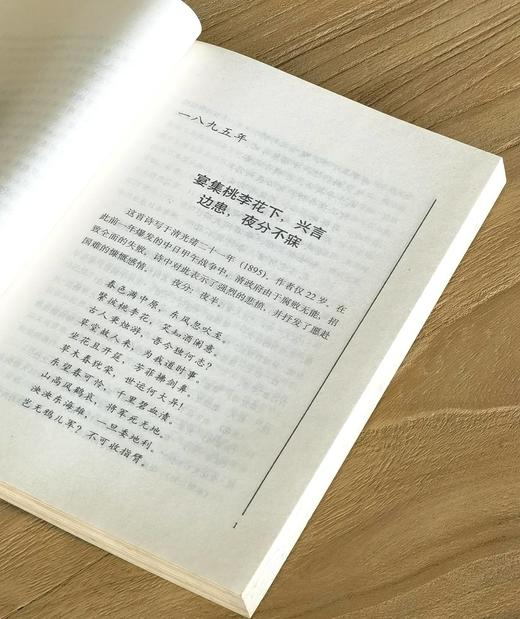 一八九五年
宴集桃李花下，兴言
边患，夜分不寐
这首诗写于清光绪二十一年（1895），作者仅22岁。在
此前一年爆发的中日甲午战争中，清政府由于腐败无能，招
致全面的失败，诗中对此表示了强烈的悲愤，并抒发了愿赴
国难的慷慨感情。
夜分：夜半。
春色满中原，东风忽吹至。
繁候桃李花，笑知酒阑意。
古人秉烛游，吾今独何志？
草堂故人来，为我道时事。
坐花且开筵，芳菲拂剑鼻。
草木春犹荣，世运何大异！
东望春可怜，千里碧血渍。
山高风鹤哀，将军死无地。
泱泱东海雄，一旦委地利。
岂无鸦儿军？不可收指臂。
1